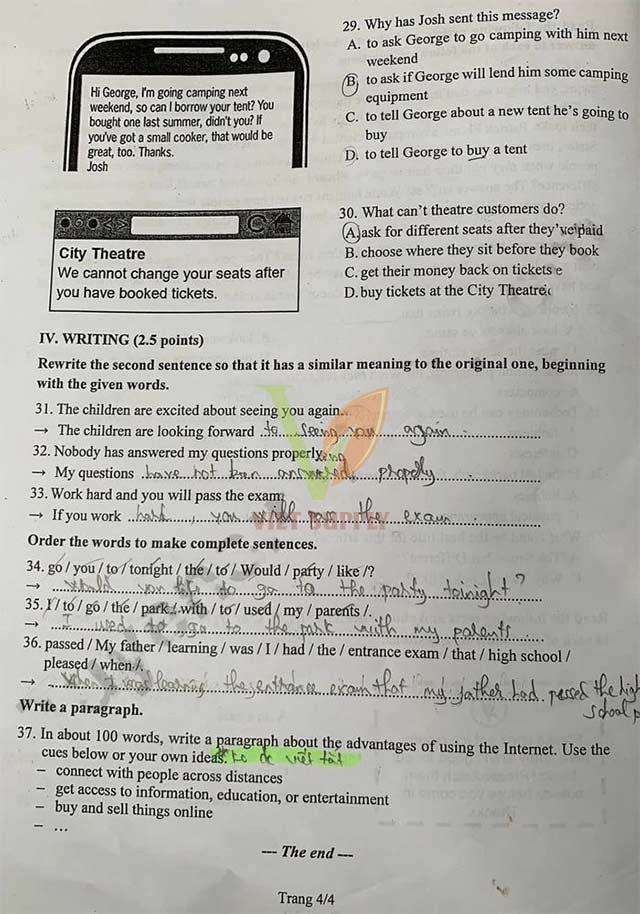 Hi George, I'm going camping next
weekend, so can I borrow your tent? You
bought one last summer, didn't you? If
you've got a small cooker, that would be
great, too. Thanks.
Josh
29. Why has Josh sent this message?
A. to ask George to go camping with him next
weekend
B. to ask if George will lend him some camping
equipment
C. to tell George about a new tent he's going to
buy
D. to tell George to buy a tent
City Theatre
We cannot change your seats after
you have booked tickets.
30. What can't theatre customers do?
A. ask for different seats after they've paid
B. choose where they sit before they book
C. get their money back on tickets
D. buy tickets at the City Theatre
IV. WRITING (2.5 points)
Rewrite the second sentence so that it has a similar meaning to the original one, beginning
with the given words.
31. The children are excited about seeing you again.
→ The children are looking forward to seeing you again
32. Nobody has answered my questions properly.
→ My questions have not been answered propelly
33. Work hard and you will pass the exam.
→ If you work hard, you will pass the exam
VIET SUPPLY
Order the words to make complete sentences.
34. go / you / to / tonight / the / to / Would / party / like /?
→ would you like to go to the party toinight?
35. I / to / go / the / park / with / to / used / my / parents /.
→ I used to go to the park with my palents
36. passed / My father / learning / was / I / had / the / entrance exam / that / high school /
pleased / when /.
→ when I was learning the entrance exam that my father had passed the high
school p
Write a paragraph.
37. In about 100 words, write a paragraph about the advantages of using the Internet. Use the
cues below or your own ideas. ko đc viết tắt
– connect with people across distances
– get access to information, education, or entertainment
– buy and sell things online
– ...
--- The end ---
Trang 4/4